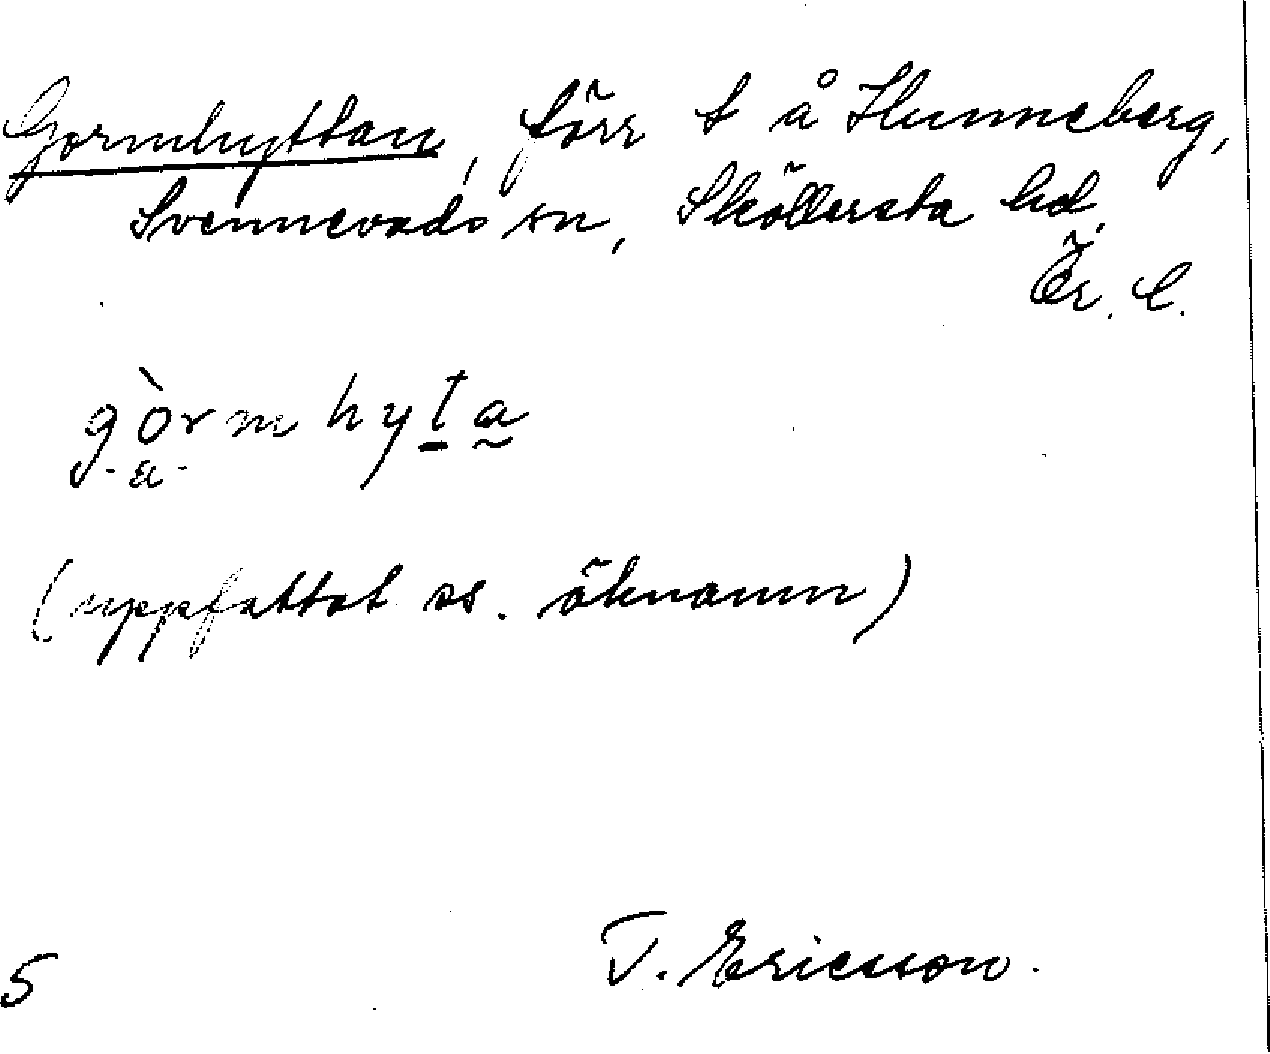 Gormhyttan, förr t å Hunneberg,
Svennevads sn, Sköllersta hd,
Ör. l.
gòrmhyta
(uppfattat ss. öknamn)
T. Ericsson.
5